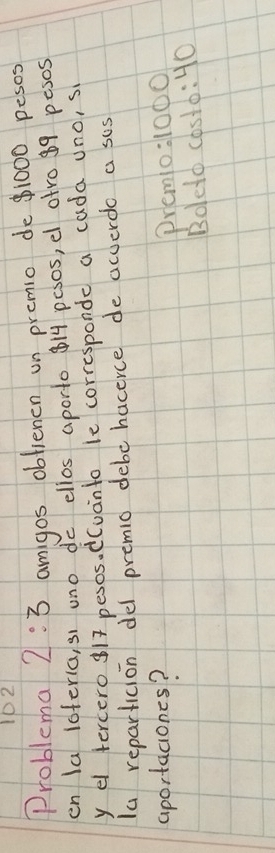 102
Problema 2: 3 amigos obtienen un premio de $1000 pesos
en la lotería, si uno de ellos aporto $14 pesos, el otro $9 pesos
y el tercero $17 pesos. ¿Cuánto le corresponde a cada uno, si
la repartición del premio debe hacerce de acuerdo a sus
aportaciones?
Premio: 1000
Boleto costo: 40